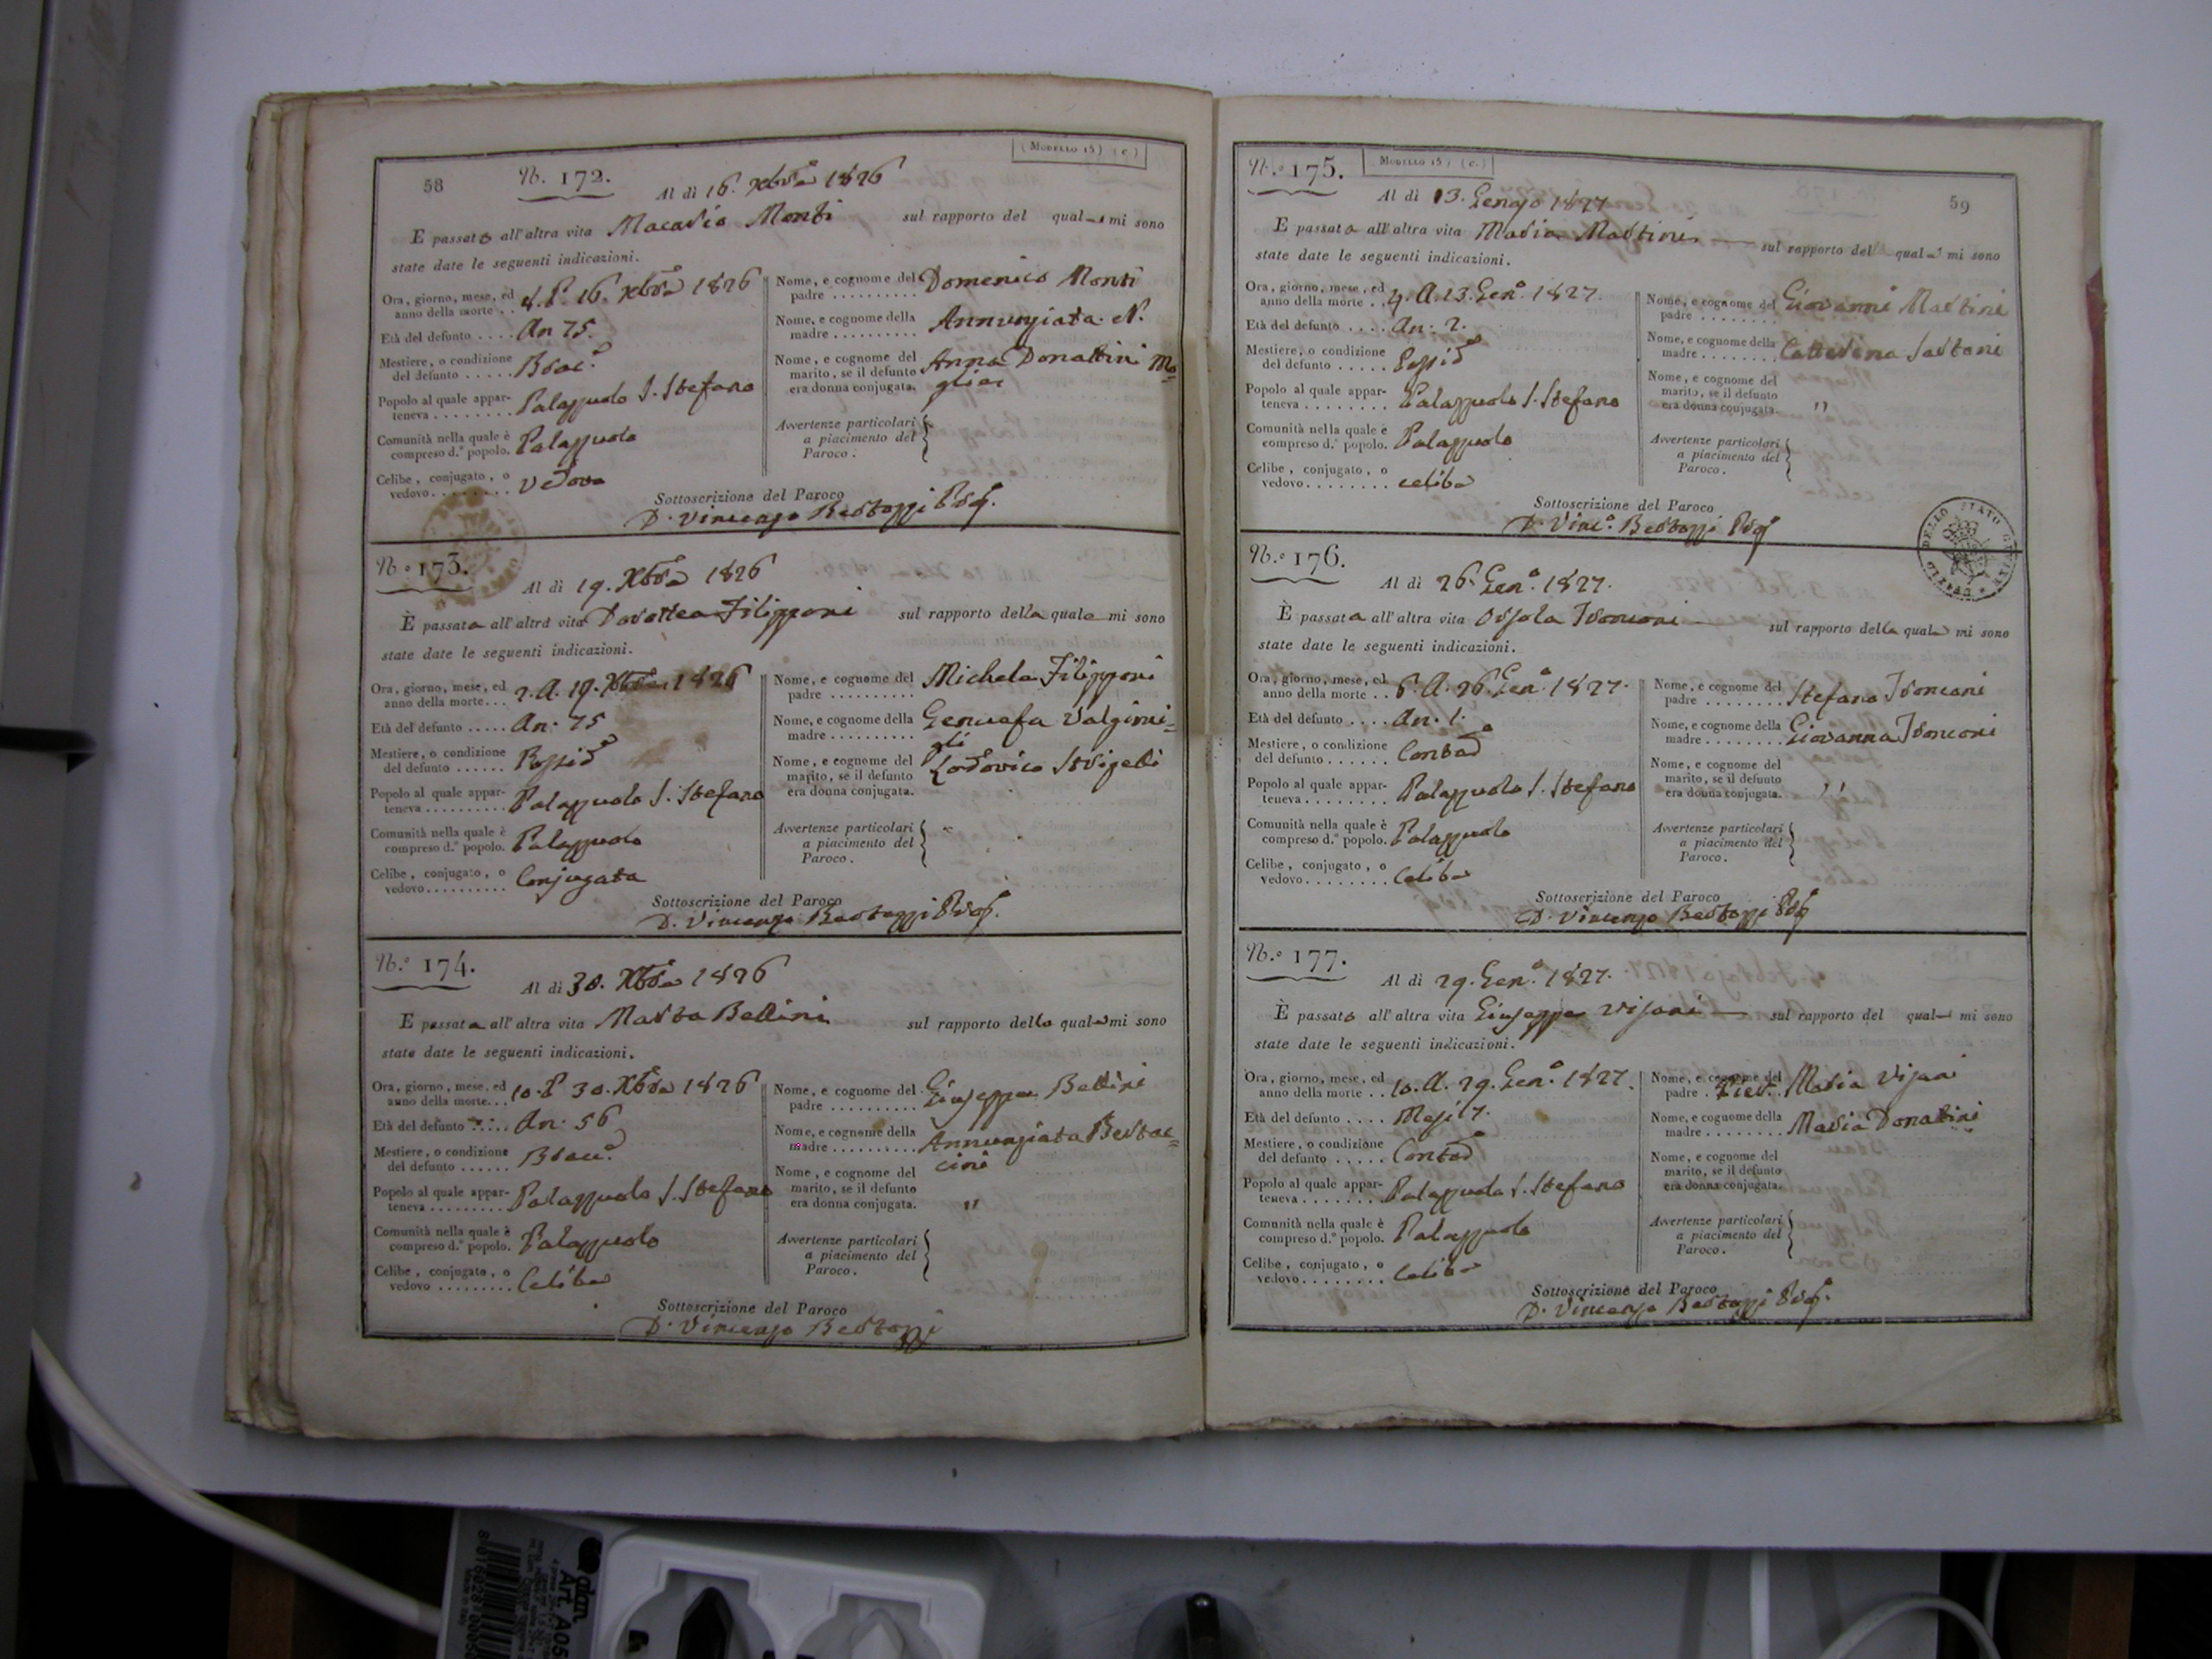 (Modello 15) (c.)
58
N. 172.
Al dì 16. Xbre 1826
È passato all'altra vita Macario Monti sul rapporto del quale mi sono
state date le seguenti indicazioni.
Ora, giorno, mese, ed
anno della morte . . 4. P. 16. Xbre 1826
Età del defunto . . . . An 75.
Mestiere, o condizione
del defunto . . . . . Brac.e
Popolo al quale appar-
teneva . . . . . . . . Palazzuolo S. Stefano
Comunità nella quale è
compreso d.° popolo. Palazzuolo
Celibe, conjugato, o
vedovo. . . . . . . . . vedovo
Nome, e cognome del
padre . . . . . . . . . . Domenico Monti
Nome, e cognome della
madre . . . . . . . . . Annunziata N.
Nome, e cognome del
marito, se il defunto
era donna conjugata. Anna Donattini Mo=
glie
Avvertenze particolari
a piacimento del
Paroco.
Sottoscrizione del Paroco
D. Vincenzo Bertozzi
N.° 173.
Al dì 19. Xbre 1826
È passata all'altra vita Dorottea Filipponi sul rapporto della quale mi sono
state date le seguenti indicazioni.
Ora, giorno, mese, ed
anno della morte. . . 2. A. 19. Xbre 1826
Età del defunto . . . . . An. 75
Mestiere, o condizione
del defunto . . . . . . Possid.e
Popolo al quale appar-
teneva . . . . . . . . . . Palazzuolo S. Stefano
Comunità nella quale è
compreso d.° popolo. Palazzuolo
Celibe, conjugato, o
vedovo. . . . . . . . . . Conjugata
Nome, e cognome del
padre . . . . . . . . . . Michele Filipponi
Nome, e cognome della
madre . . . . . . . . . . Genuefa Valgimi=
gli
Nome, e cognome del
marito, se il defunto
era donna conjugata. Lodovico Strigelli
Avvertenze particolari
a piacimento del
Paroco.
Sottoscrizione del Paroco
D. Vincenzo Bertozzi
N.° 174.
Al dì 30. Xbre 1826
È passata all'altra vita Marta Bellini sul rapporto della quale mi sono
state date le seguenti indicazioni.
Ora, giorno, mese, ed
anno della morte. . . 10. P 30. Xbre 1826
Età del defunto . . . . . An. 56
Mestiere, o condizione
del defunto . . . . . . Brac.e
Popolo al quale appar-
teneva . . . . . . . . . Palazzuolo S. Stefano
Comunità nella quale è
compreso d.° popolo. Palazzuolo
Celibe, conjugato, o
vedovo . . . . . . . . . Celibe
Nome, e cognome del
padre . . . . . . . . . . Giuseppe Bellini
Nome, e cognome della
madre . . . . . . . . . . Annunziata Bertac=
cini
Nome, e cognome del
marito, se il defunto
era donna conjugata. "
Avvertenze particolari
a piacimento del
Paroco.
Sottoscrizione del Paroco
D. Vincenzo Bertozzi
N.° 175.
Modello 15) (c.)
59
Al dì 13. Genajo 1827
È passata all'altra vita Maria Martini sul rapporto del quale mi sono
state date le seguenti indicazioni.
Ora, giorno, mese, ed
anno della morte . . 4. A. 13. Gen.° 1827.
Età del defunto . . . . An. 2.
Mestiere, o condizione
del defunto . . . . . Possid.e
Popolo al quale appar-
teneva . . . . . . . . Palazzuolo S. Stefano
Comunità nella quale è
compreso d.° popolo. Palazzuolo
Celibe, conjugato, o
vedovo. . . . . . . . celibe
Nome, e cognome del
padre . . . . . . . . Giovanni Martini
Nome, e cognome della
madre . . . . . . . . Catterina Sartoni
Nome, e cognome del
marito, se il defunto
era donna conjugata. "
Avvertenze particolari
a piacimento del
Paroco.
Sottoscrizione del Paroco
D. Vinc.° Bertozzi
N.° 176.
Al dì 26. Gen.° 1827.
È passata all'altra vita Orsola Tronconi sul rapporto della quale mi sono
state date le seguenti indicazioni.
Ora, giorno, mese, ed
anno della morte . . 6. A. 26. Gen.° 1827.
Età del defunto . . . . An. 1.
Mestiere, o condizione
del defunto . . . . . . Contad.e
Popolo al quale appar-
teneva . . . . . . . . Palazzuolo S. Stefano
Comunità nella quale è
compreso d.° popolo. Palazzuolo
Celibe, conjugato, o
vedovo. . . . . . . . Celibe
Nome, e cognome del
padre . . . . . . . . Stefano Tronconi
Nome, e cognome della
madre . . . . . . . . Giovanna Tronconi
Nome, e cognome del
marito, se il defunto
era donna conjugata. "
Avvertenze particolari
a piacimento del
Paroco.
Sottoscrizione del Paroco
D. Vincenzo Bertozzi
N.° 177.
Al dì 29. Gen.° 1827.
È passato all'altra vita Giuseppe Visani sul rapporto del quale mi sono
state date le seguenti indicazioni.
Ora, giorno, mese, ed
anno della morte . . 10. A. 29. Gen.° 1827.
Età del defunto . . . . Mesi 7.
Mestiere, o condizione
del defunto . . . . . Contad.e
Popolo al quale appar-
teneva . . . . . . . . Palazzuolo S. Stefano
Comunità nella quale è
compreso d.° popolo. Palazzuolo
Celibe, conjugato, o
vedovo. . . . . . . . Celibe
Nome, e cognome del
padre . Maria Visani
Nome, e cognome della
madre . . . . . . . . Maria Donatini
Nome, e cognome del
marito, se il defunto
era donna conjugata.
Avvertenze particolari
a piacimento del
Paroco.
Sottoscrizione del Paroco
D. Vincenzo Bertozzi
Art. A05